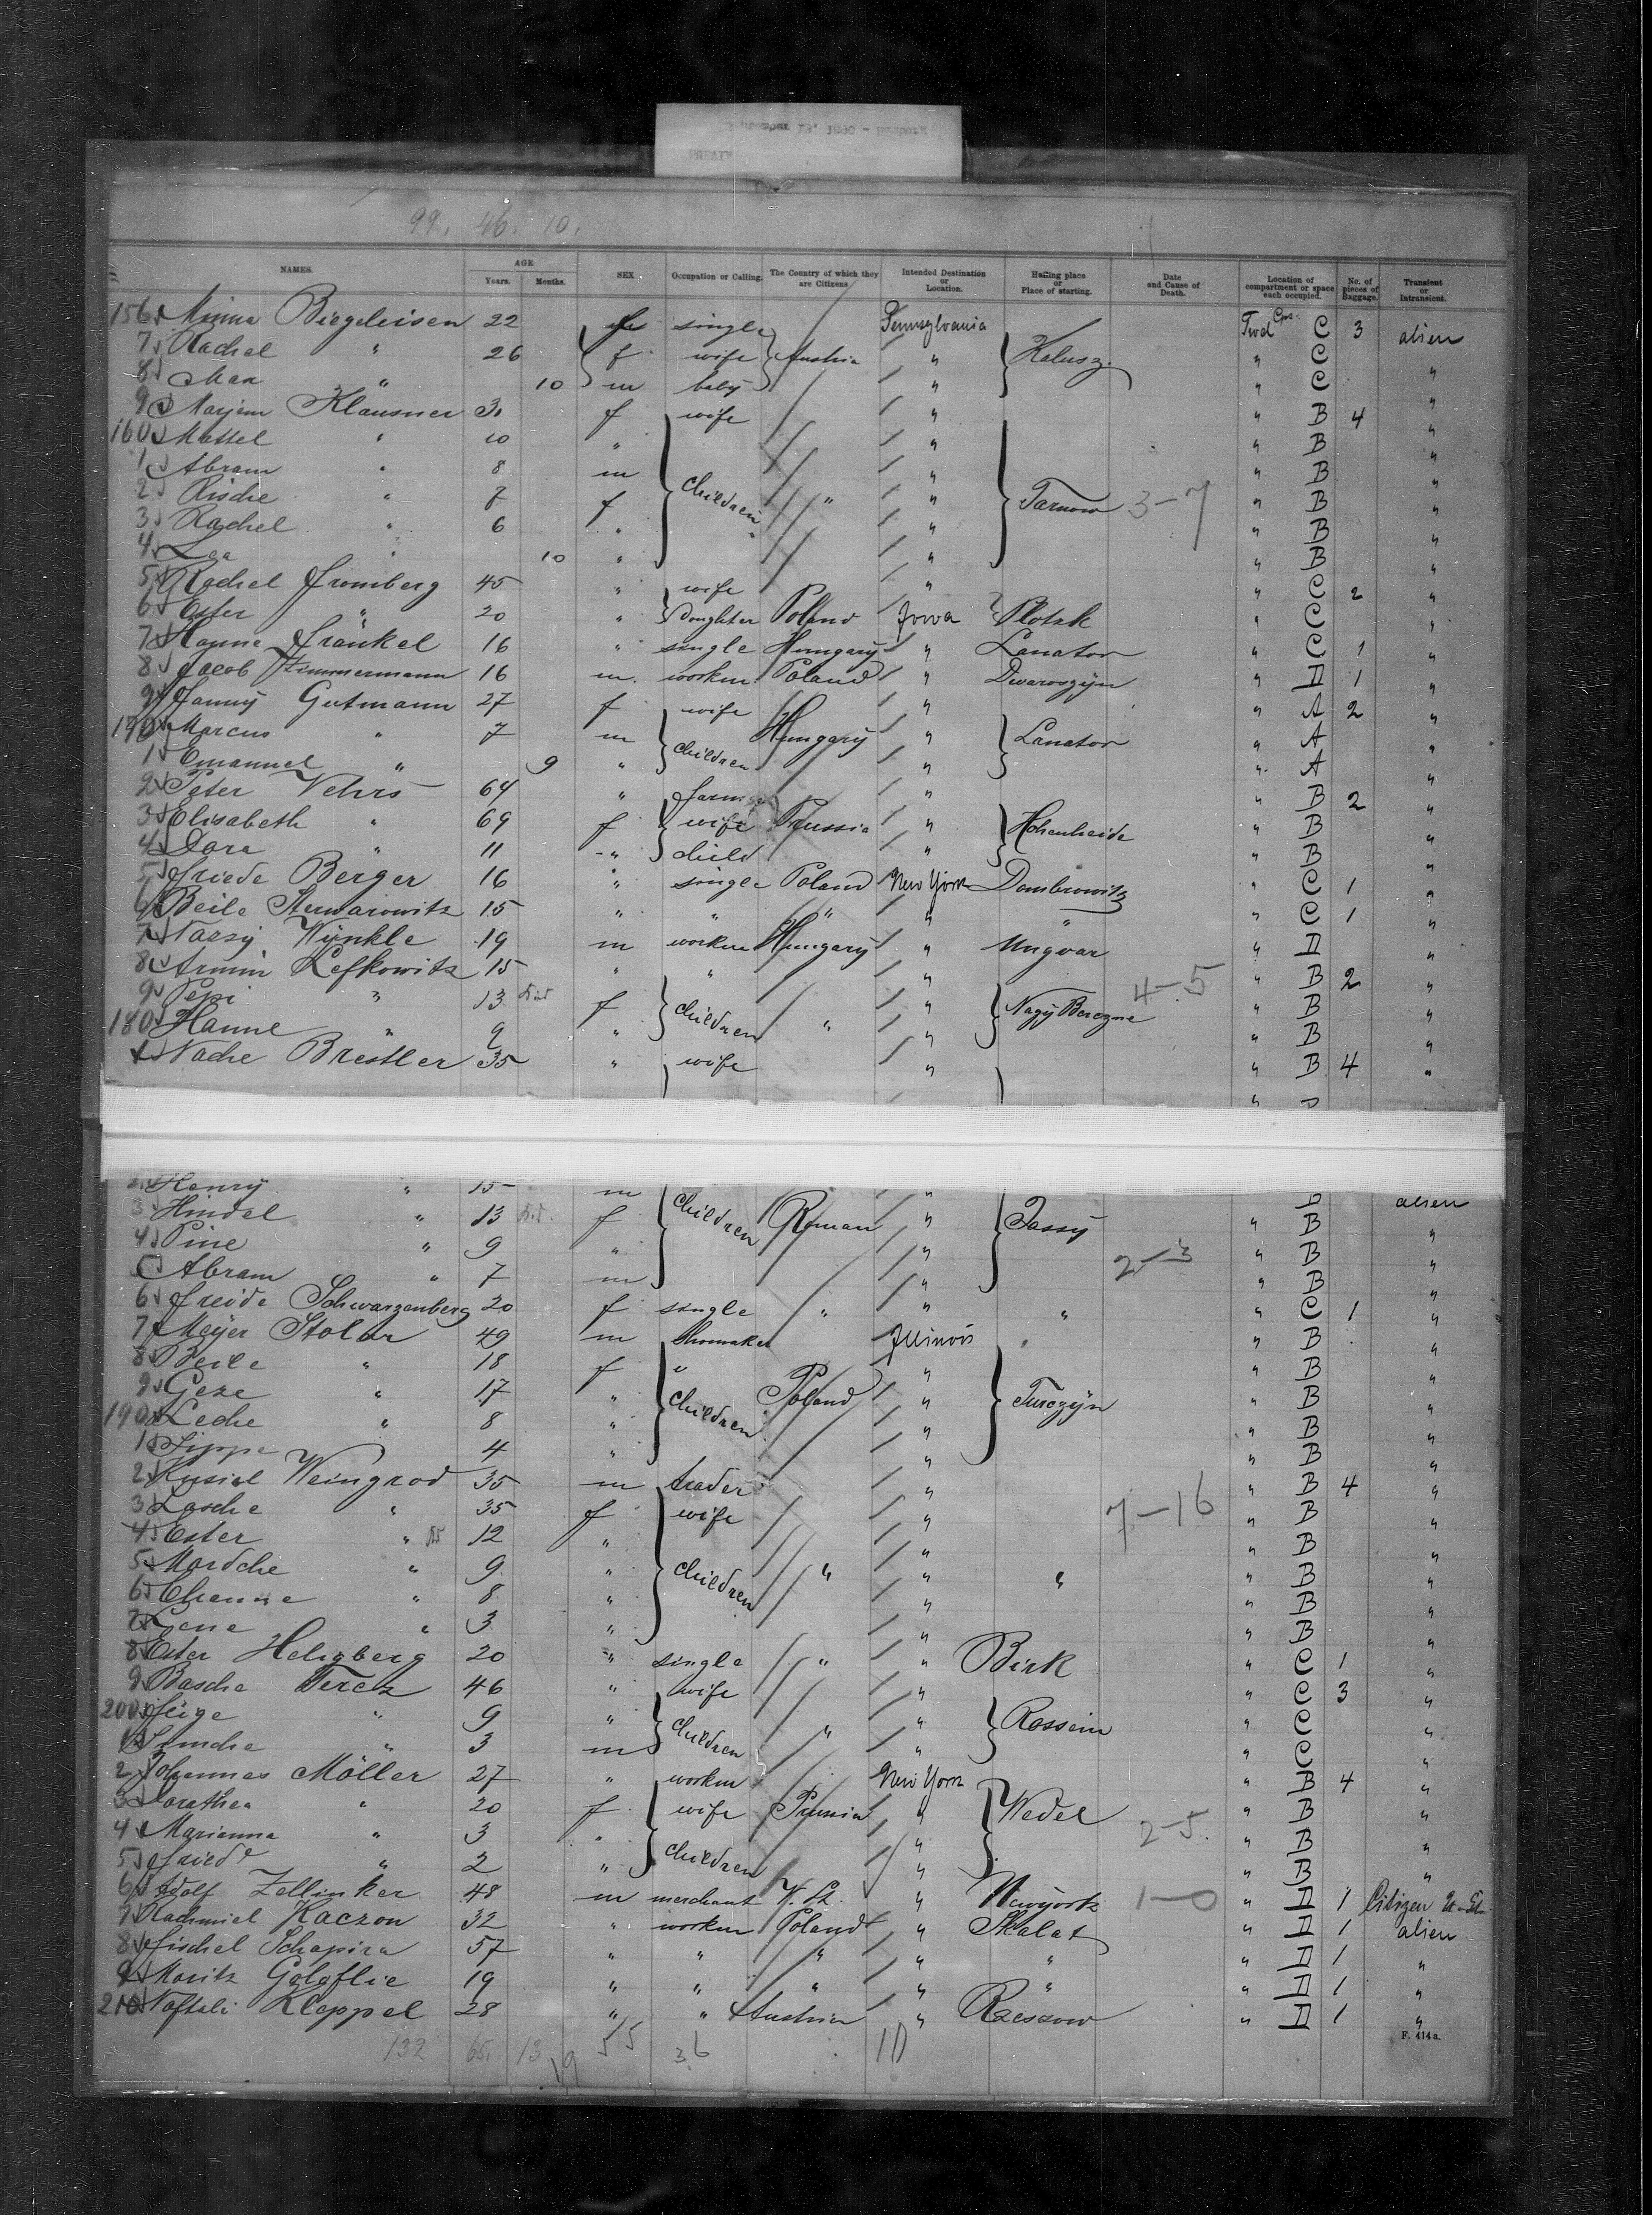 September 13, 1890 - Hamburg
99. 46. 10.
NAMES. AGE Years. Months. SEX Occupation or Calling. The Country of which they are Citizens. Intended Destination or Location. Hailing place or Place of starting. Date and Cause of Death. Location of compartment or space each occupied. No. of pieces of Baggage. Transient or Intransient.
156 Minna Biegeleisen 22 single Pennsylvania Fwd Cps. C 3 alien
7 Rachel " 26 f wife Austria " Kalusz " C "
8 Max " 10 m baby " " C "
9 Marjem Klausner 30 f wife " " B 4 "
160 Mattel " 10 " " " B "
1 Abram " 8 m " " B "
2 Rische " 7 f children " " Tarnow 3-7 " B "
3 Rachel " 6 " " " B "
4 Lea " 10 " " " B "
5 Rachel Fromberg 45 " wife " " C 2 "
6 Ester " 20 " Doughter Poland Jowa Plotzk " C "
7 Hanne Fränkel 16 " single Hungary " Lanator " C 1 "
8 Jacob Zimmermann 16 m worker Poland " Dwaroszyn " D 1 "
9 Fanny Gutmann 27 f wife " " A 2 "
170 Marcus " 7 m children Hungary " Lanator " A "
1 Emanuel " 9 " " " A "
2 Peter Vehrs 64 " farmer " " B 2 "
3 Elisabeth " 69 f wife Prussia " Hohenheide " B "
4 Dora " 11 " child " " B "
5 Friede Berger 16 " single Poland New York Dombrowitz " C 1 "
6 Beile Sterwarowitz 15 " " " " " " C 1 "
7 Nazsy Wynkle 19 m worker Hungary " Ungvar " D "
8 Armin Lefkowitz 15 " " " 4-5 " B 2 "
9 Pepi " 13 f children " Nagy Berezne " B "
180 Hanne " 9 " " " " B "
1 Nache Brestler 35 " wife " " B 4 "
2 Henry " 15 m " alien
3 Hindel " 13 f children Roman " Jassy " B "
4 Pine " 9 " " 2-3 " B "
5 Abram " 7 m " " B "
6 Freide Schwarzenberg 20 f single " " " " C 1 "
7 Meyer Stolar 49 m Shomaker Jllinois " B "
8 Beile " 18 f " " " B "
9 Geze " 17 " children Poland " Turczyn " B "
190 Leche " 8 " " " B "
1 Zippe 4 " " " B "
2 Kusiel Weingrod 35 m trader " " B 4 "
3 Lasche " 35 f wife " 7-16 " B "
4 Ester " 12 " " " B "
5 Mordche " 9 " children " " " " B "
6 Chenne " 8 " " " B "
7 Gene " 3 " " " B "
8 Ester Heligberg 20 " single " " Birk " C 1 "
9 Basche Tercz 46 " wife " " C 3 "
200 Feige " 9 " children " " Rossein " C "
1 Simche " 3 m " " C "
2 Johannes Möller 27 " worker New York " B 4 "
3 Dorethea " 20 f wife Prussia " Wedel " B "
4 Marianna " 3 " children " 2-5. " B "
5 Friede " 2 " " " B "
6 Adolf Zellinker 48 m merchant " Newyork 1-0 " D 1 Citizen
7 Rachmiel Kaczon 32 " worker Poland " Skalat " D 1 alien
8 Fischel Schapira 57 " " " " " " D 1 "
9 Moritz Golgflie 19 " " " " " " D 1 "
210 Naftali Kleppel 28 " " Austria " Rzeszow " D 1 "
F. 414a.
132 65. 13 19 55 36 10